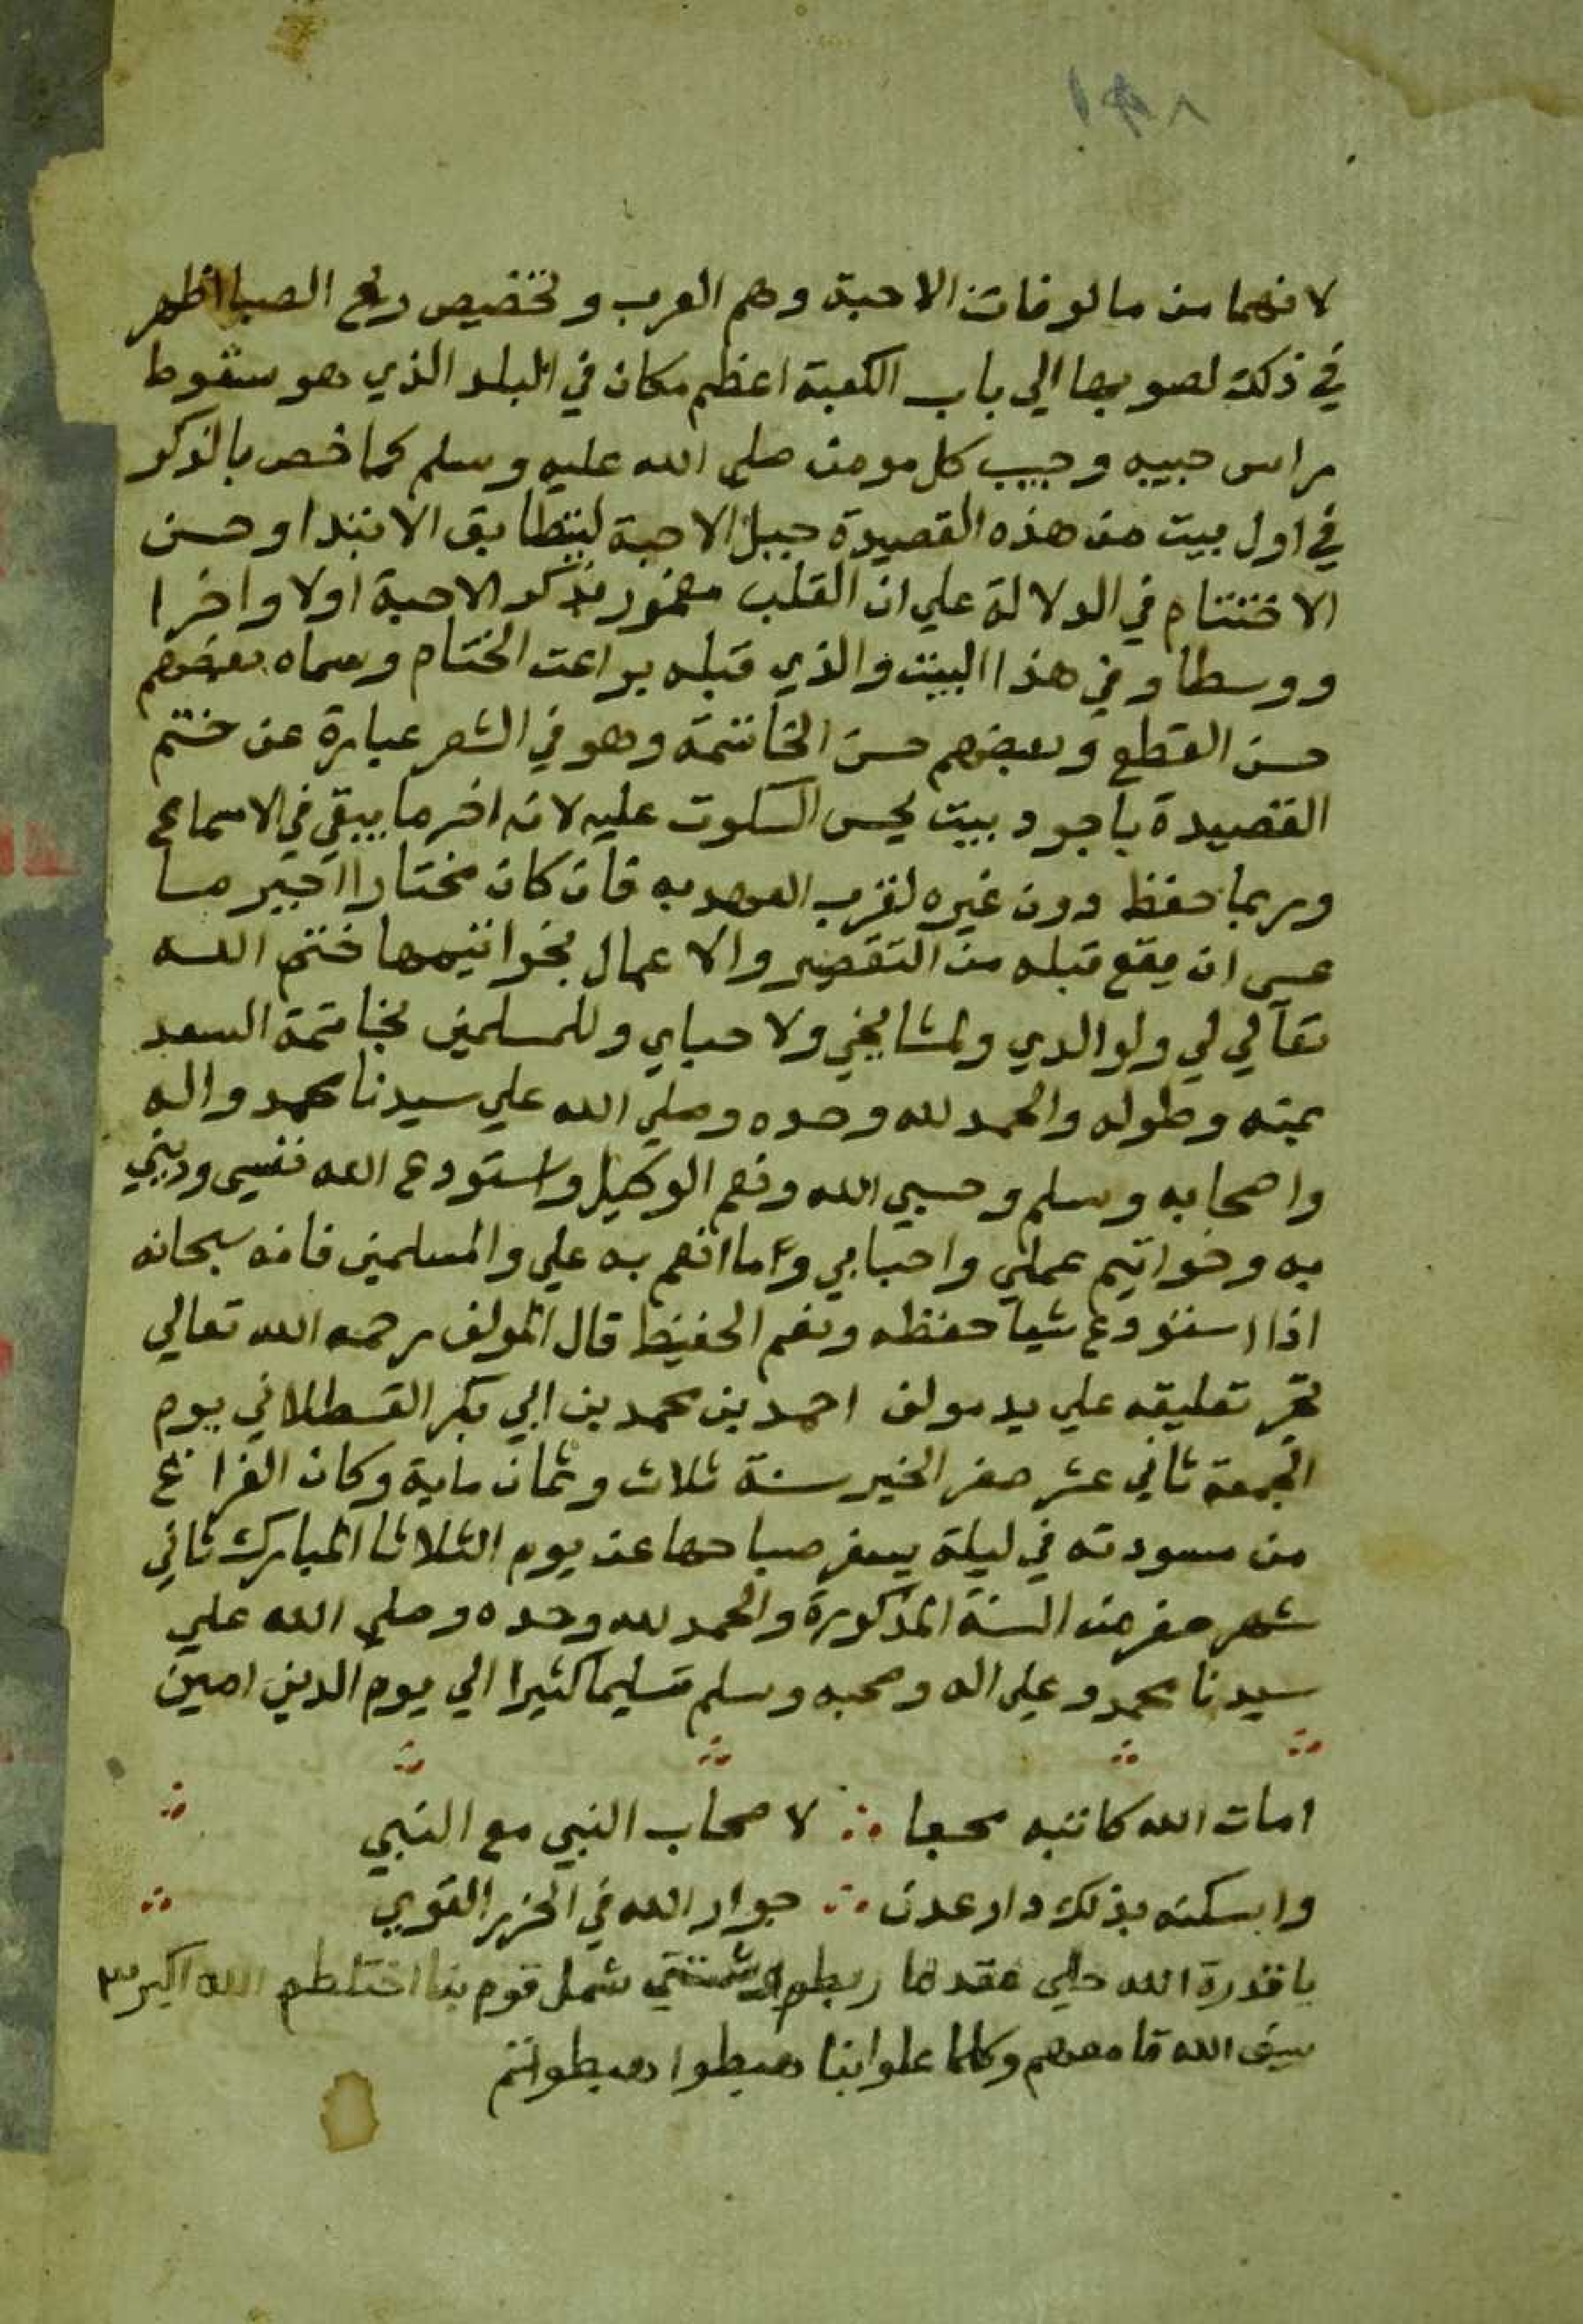 ١٣٨
لانهما من مالوفات الاحبة وهم العرب وتخصيص ريح الصبا اظهر
في ذلك لصوبها الي باب الكعبة اعظم مكان في البلد الذي هو سقوط
راس حبيبه وحبيب كل مومن صلي الله عليه وسلم كما خص بالذكر
في اول بيت من هذه القصيدة الاحبة ليتطابق الابتدا وحسن
الاختتام في الدلالة علي ان القلب معمور بذكر الاحبة اولا واخرا
ووسطا وفي هذا البيت والذي قبله براعت الختام وسماه بعضهم
حسن القطع وبعضهم حسن الخاتمة وهو في الشعر عبارة عن ختم
القصيدة باجود بيت يحسن السكوت عليه لانه اخر ما يبقي في الاسماع
وربما حفظ دون غيره لقرب العهد به فان كان مختارا جبر ما
عسي ان يقع قبله من التقصير والاعمال بخواتيمها ختم الله
تعالي لي ولوالدي ولمشايخي ولاحباي وللمسلمين بخاتمة السعد
بمنه وطوله والحمد لله وحده وصلي الله علي سيدنا محمد واله
واصحابه وسلم وحسبي الله ونعم الوكيل واستودع الله نفسي وديني
به وخواتيم عملي واحبابي وما انعم به علي والمسلمين فانه سبحانه
اذا استودع شيا حفظه ونعم الحفيظ قال المولف رحمه الله تعالي
تعليقه علي يد مولفه احمد بن محمد بن ابي بكر القسطلاني يوم
الجمعة ثاني عشر صفر الخير سنة ثلاث وثمان ماية وكان الفراغ
من مسودته في ليلة يسفر صباحها عن يوم الثلاثا المبارك ثاني
شهر صفر من السنة المذكورة والحمد لله وحده وصلي الله علي
سيدنا محمد وعلي اله وصحبه وسلم تسليما كثيرا الي يوم الدين امين
امات الله كاتبه محبا ∴ لاصحاب النبي مع النبي
واسكنه بذلك دار عدن ∴ جوار الله في الحرز القوي
يا قدرة الله حلي عقد ما ربطوا وشتتي شمل قوم بنا اختلطم الله اكبر ٣
سيف الله قامعهم وكلما علوا بنا هبطوا هبطوا تم